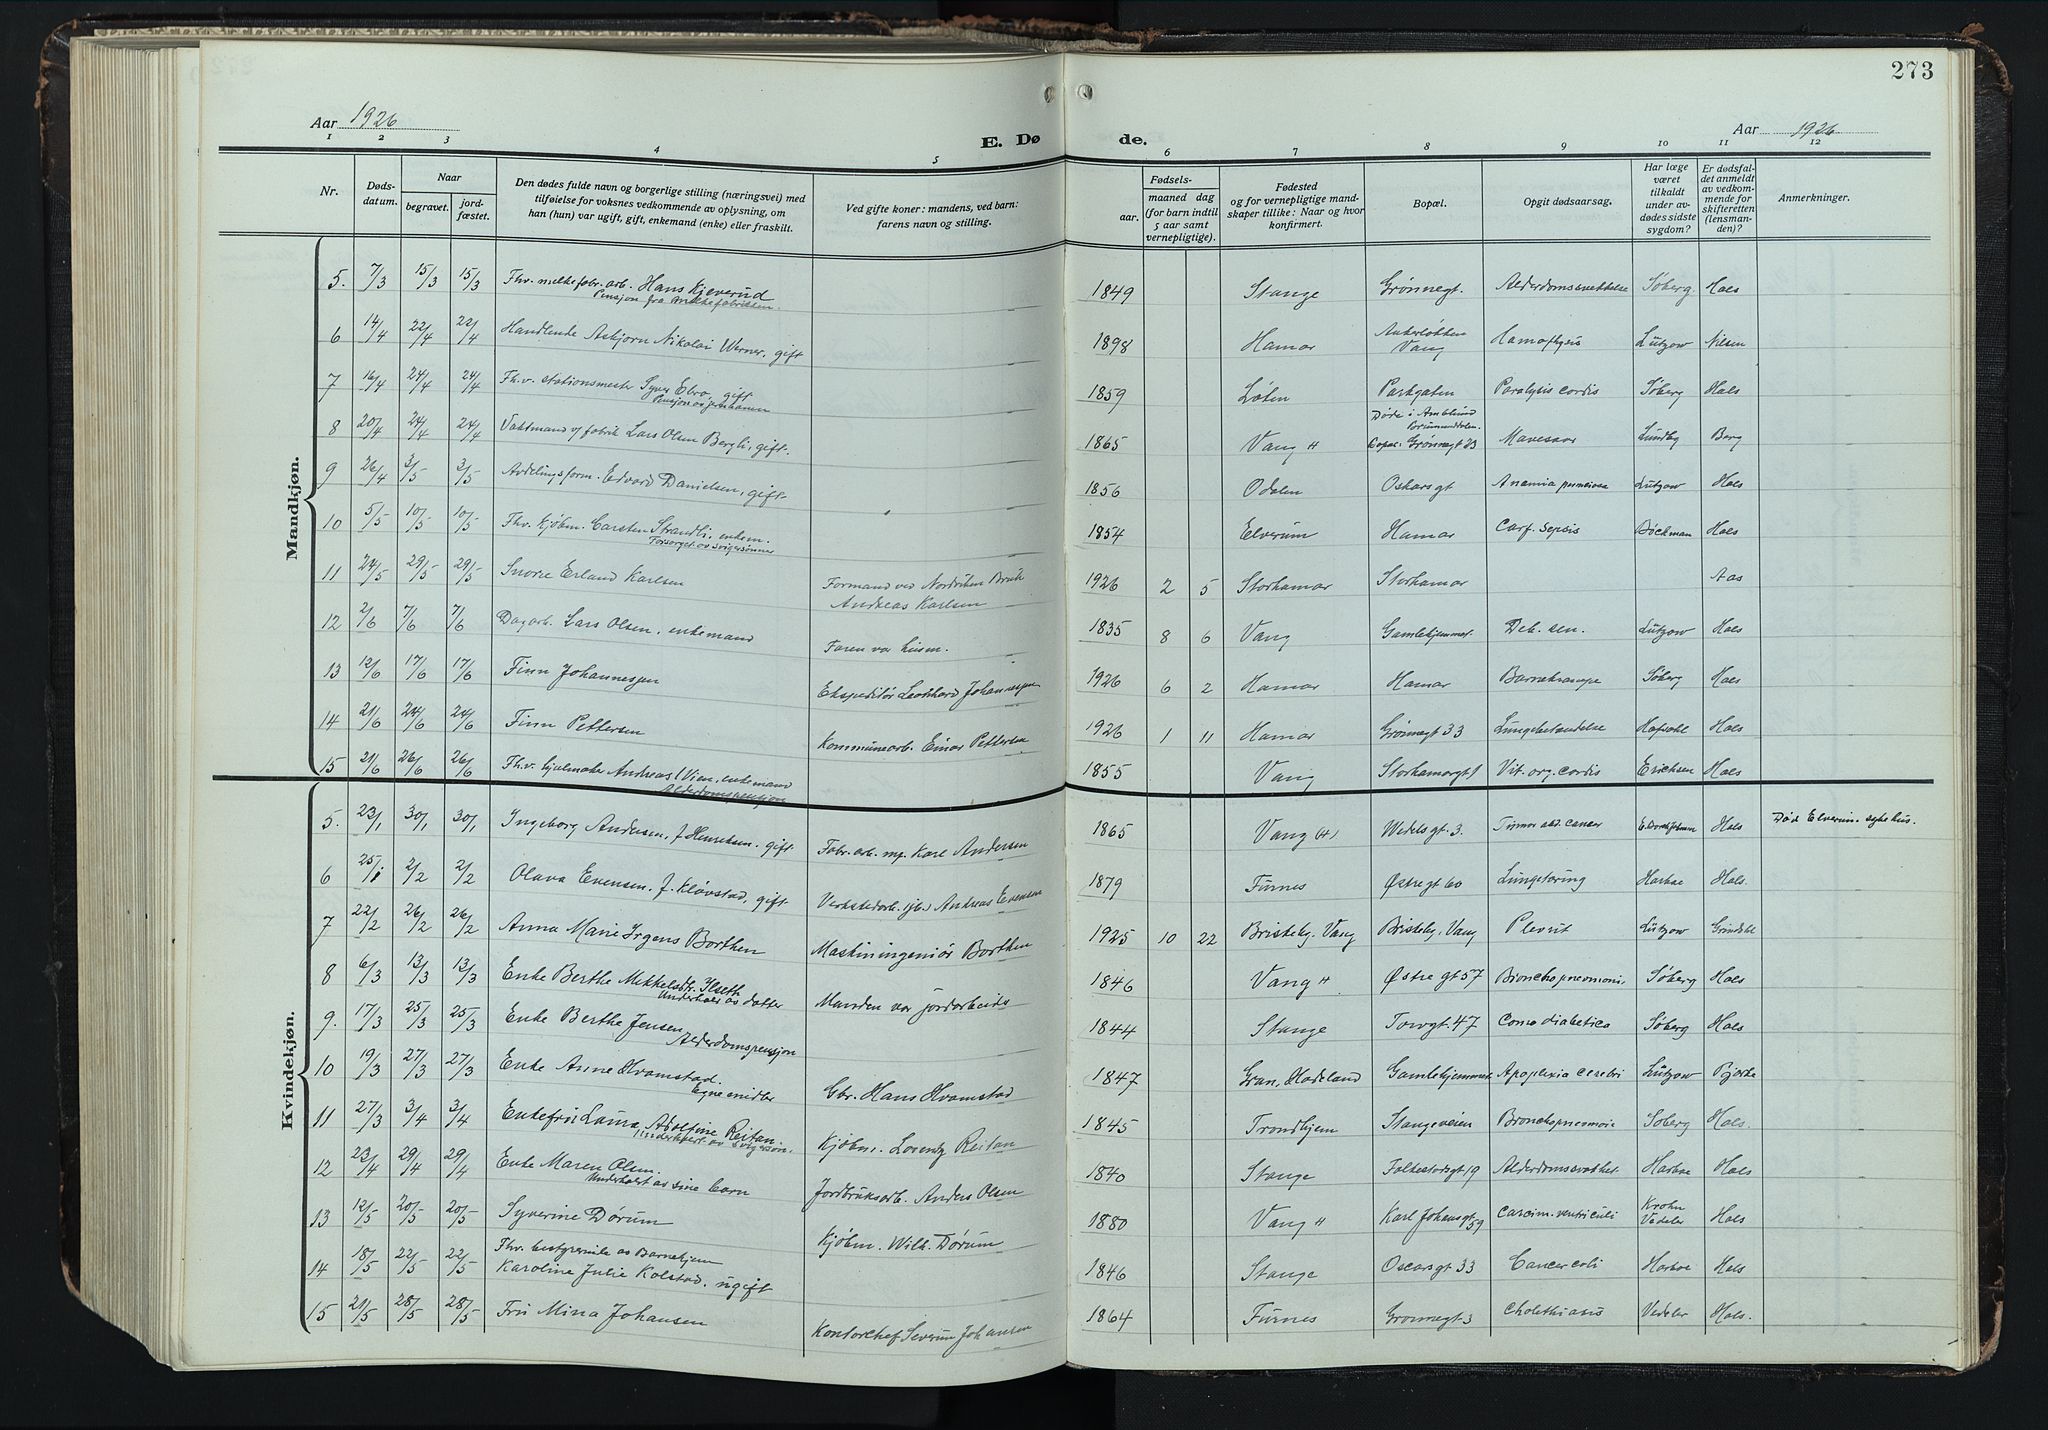 273
Aar 1926
E. Dø
de.
Aar 1926
1 2 3 4 5 6 7 8 9 10 11 12
Nr.
Døds-
datum.
Naar
begravet.
jord-
fæstet.
Den dødes fulde navn og borgerlige stilling (næringsvei) med
tilføielse for voksnes vedkommende av oplysning, om
han (hun) var ugift, gift, enkemand (enke) eller fraskilt.
Ved gifte koner: mandens, ved barn:
farens navn og stilling.
Fødsels-
aar.
maaned dag
(for barn indtil
5 aar samt
vernepligtige).
Fødested
og for vernepligtige mand-
skaper tillike: Naar og hvor
konfirmert.
Bopæl.
Opgit dødsaarsag.
Har læge
været
tilkaldt
under av-
dødes sidste
sygdom?
Er dødsfal-
det anmeldt
av vedkom-
mende for
skifteretten
(lensman-
den)?
Anmerkninger.
Mandkjøn.
5. 7/3 15/3 15/3 Fhv. melkefabr. arb. Hans Kjeverud 1849 Stange Grønnegt. Alderdomssvekkelse Søberg Hals
Pensjon fra melkefabrikken.
6 14/4 22/4 22/4 Handlende Asbjørn Nikolai Werner, gift 1898 Hamar Ankerløkken Lützow Nilsen
Vang
7 16/4 24/4 24/4 Fh.v. stationsmester Syver Ebro, gift 1859 Løten Parkgaten Paralysis cordis Søberg Hals
Pensjon av jernbanen
8 20/4 24/4 24/4 Vaktmand v/ fabrik Lars Olsen Bergli, gift. 1865 Vang H Døde i Amblund
Brumunddalen.
Bopæl: Grønnegt 23 Mavesaar Lundby Berg
9 26/4 3/5 3/5 Avdelingsform. Edvard Danielsen, gift 1856 Odalen Oskarsgt Anæmia perniciosa Lützow Hals
10 5/5 10/5 10/5 Fhv. kjøbm. Carsten Strandli, enkem. 1854 Elverum Hamar Sepsis Bøckman Hals
Forsørget av svigersønner
11 24/5 29/5 29/5 Snorre Erland Karlsen Formand ved Nordviken Bruk 1926 2 5 Storhamar Storhamar Aas
Andreas Karlsen
12 2/6 7/6 7/6 Dagarb. Lars Olsen, enkemand Faren var husm. 1835 8 6 Vang Gamlehjemmet. Deb. sen. Lützow Hals
13 12/6 17/6 17/6 Finn Johannesjen Ekspeditør Leonhard Johannesjen 1926 6 2 Hamar Hamar Barnekrampe Søberg Hals
14 21/6 24/6 24/6 Finn Pettersen Kommunearb. Einar Pettersen 1926 1 11 Hamar Grønnegt 33 Lungebetændelse Hals
15 21/6 26/6 26/6 Fh.v. hjulmaker Andreas Vien, enkemand 1855 Vang Storhamargt 1 Vit. org. cordis Erichsen Hals
Alderdomspensjon
Kvindekjøn.
5. 23/1 30/1 30/1 Ingeborg Andersen, f. Henriksen. gift Fabr. arb. Karl Andersen 1865 Vang (H) Wedels gt. 3. Tumor abd. cancer Hals Død Elverum sykehus.
6 25/1 2/2 2/2 Olava Evensen. f. Kløvstad, gift Verkstedarb. (jb.) Andreas Evensen 1879 Furnes Østregt 60 Lungetæring Harboe Hals.
7 22/2 26/2 26/2 Anna Marie Irgens Borthen Maskiningeniør Borthen 1925 10 22 Briskeby, Vang Briskeby, Vang Plevrit Lützow
8 6/3 13/3 13/3 Enke Berthe Mikkelsdtr. Ilseth Manden var jordarbeids 1846 Vang H Østre gt 57 Bronchopneumoni. Søberg Hals
Underholdt av datter
9. 17/3 25/3 25/3 Enke Berthe Jensen 1844 Stange Torvgt. 47 Coma diabetica Søberg Hals
Alderdomspensjon
10 19/3 27/3 27/3 Enke Anne Hvamstad. Gbr. Hans Hvamstad 1847 Gran, Hadeland Gamlehjemmet Apoplexia cerebri Lützow Bjørke
Egne midler
11 27/3 3/4 3/4 Enkefru Laura Adolfine Reitan. Kjøbm. Lorentz Reitan 1845 Trondhjem Stangeveien Bronchopneumoni Søberg Hals.
Underholdt av svigersøn.
12 23/4 29/4 29/4 Enke Maren Olsen. Jordbruksarb. Anders Olsen 1840 Stange Falkestadsgt 19 Alderdomssvakhet Harboe Hals
Underholdt av sine barn
13 12/5 20/5 20/5 Syverine Dørum Kjøbm. Wilh. Dørum 1880 Vang H Karl Johans gt 59 Carcim. ventriculi Krohn
Vedeler Hals
14 18/5 22/5 22/5 Fhv. bestyrerinde av Barnehjem
Karoline Julie Kolstad. ugift 1846 Stange Oscarsgt 33 Cancer coli Harboe Hals
15 21/5 28/5 28/5 Fru Mina Johansen Kontorchef Severin Johansen 1864 Furnes Grønnegt. 3 Cholethiasis Vedeler Hals.